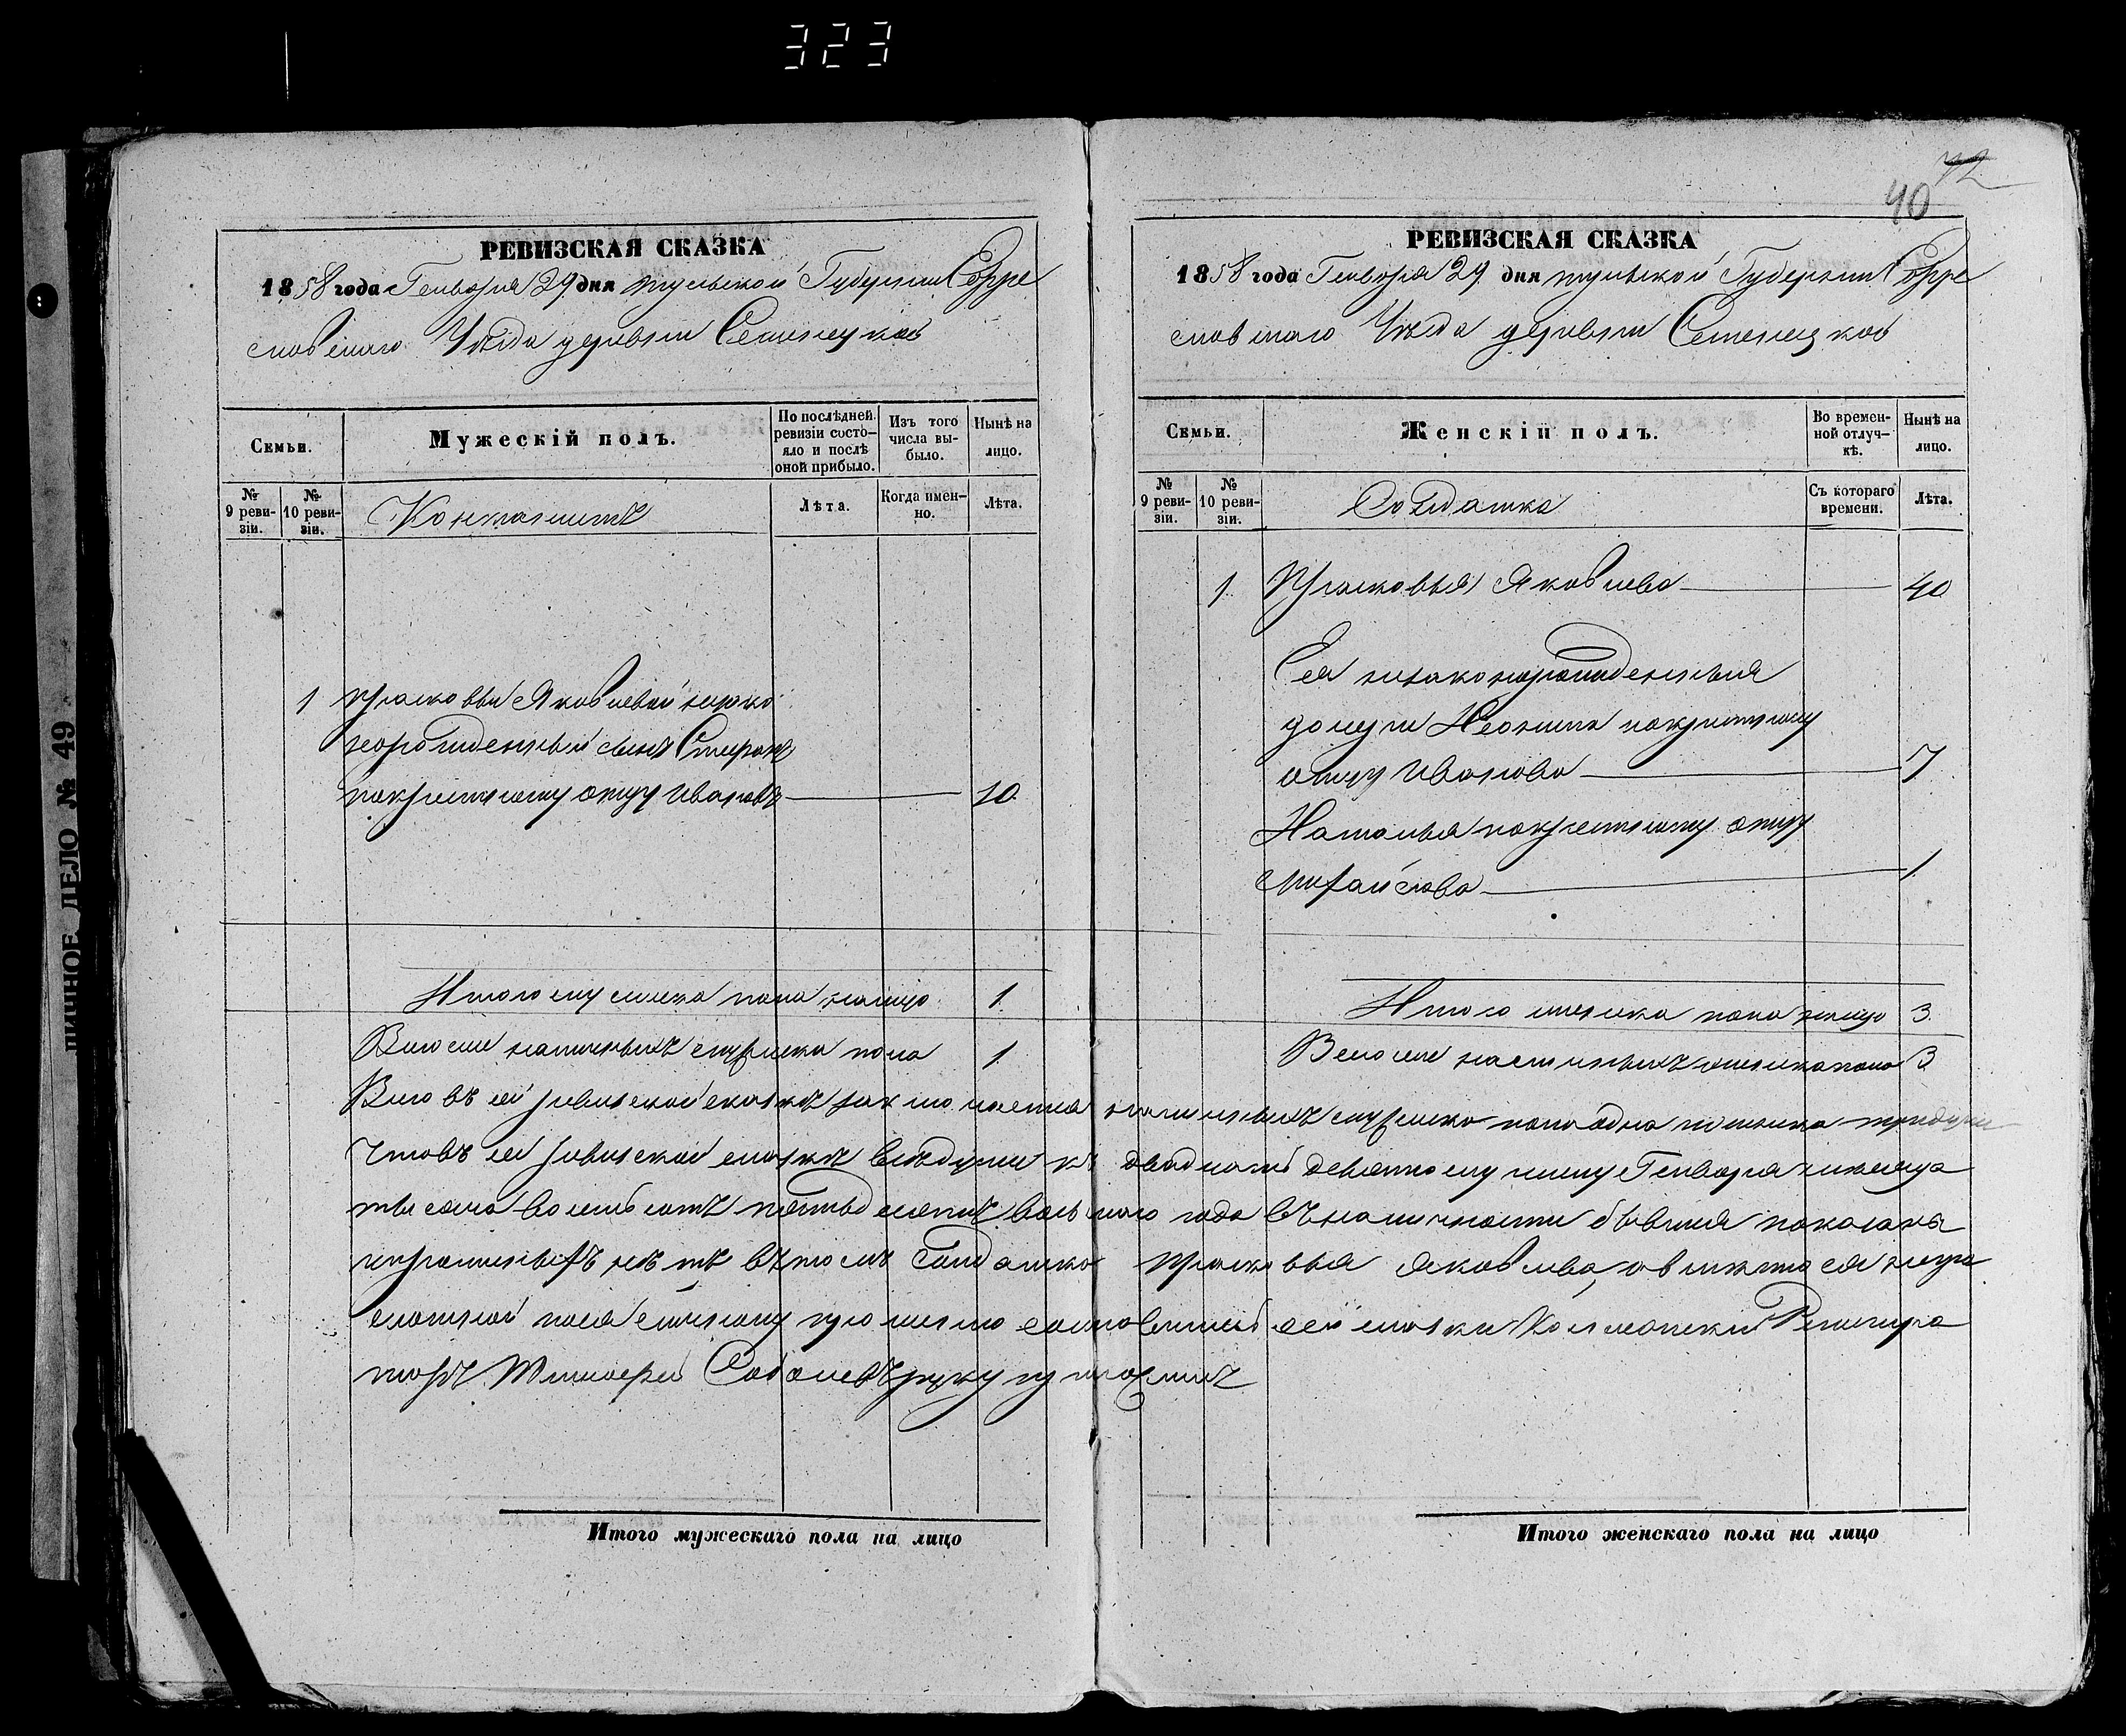 323
ПИННОЕ ДЕЛО № 49
РЕВИЗСКАЯ СКАЗКА
1858 года Генваря 29 дня Тульской Губернии
Уѣзда деревни
Семьи.
Мужескій полъ.
По послѣдней ревизіи состо-
яло и послѣ оной прибыло.
Изъ того числа вы-
было.
Нынѣ на лицо.
№ 9 реви-
зіи.
№ 10 реви-
зіи.
Кантонистъ
Лѣта.
Когда имен-
но.
Лѣта.
1 Прасковьи Яковлевой незако
норожденный сынъ
по крестному отцу Ивановъ 10
Итого мужеска пола налицо 1
Всего наличныхъ мужеска пола 1
Итого мужескаго пола на лицо
72
40
РЕВИЗСКАЯ СКАЗКА
1858 года Генваря 29 дня Тульской Губернии
Уѣзда деревни
Семьи.
Женскій полъ.
Во времен-
ной отлуч-
кѣ.
Нынѣ на лицо.
№ 9 реви-
зіи.
№ 10 реви-
зіи.
Солдатка
Съ котораго времени.
Лѣта.
1 Прасковья Яковлева 40
Ея незаконорожденныя
дочери покрестному
отцу Иванова 7
Наталья покрестному отцу
Михайлова 1
Итого женска пола налицо 3
Всего наличныхъ женска пола 3
Что въ сей ревизской сказкѣ наличныхъ мужеска пола одна женска три души
Что въ сей ревизской сказкѣ всѣ души къ двадцать девятому числу Генваря мѣсяца
тысяча восемьсотъ пятьдесятъ восьмого года въ наличности бывшия показаны
и прописныхъ нѣтъ въ томъ Солдатка Прасковья Яковлева, а вмѣсто ея негра
мотной по ея личному прошению сей сказки Регистра
торъ руку приложилъ
Итого женскаго пола на лицо